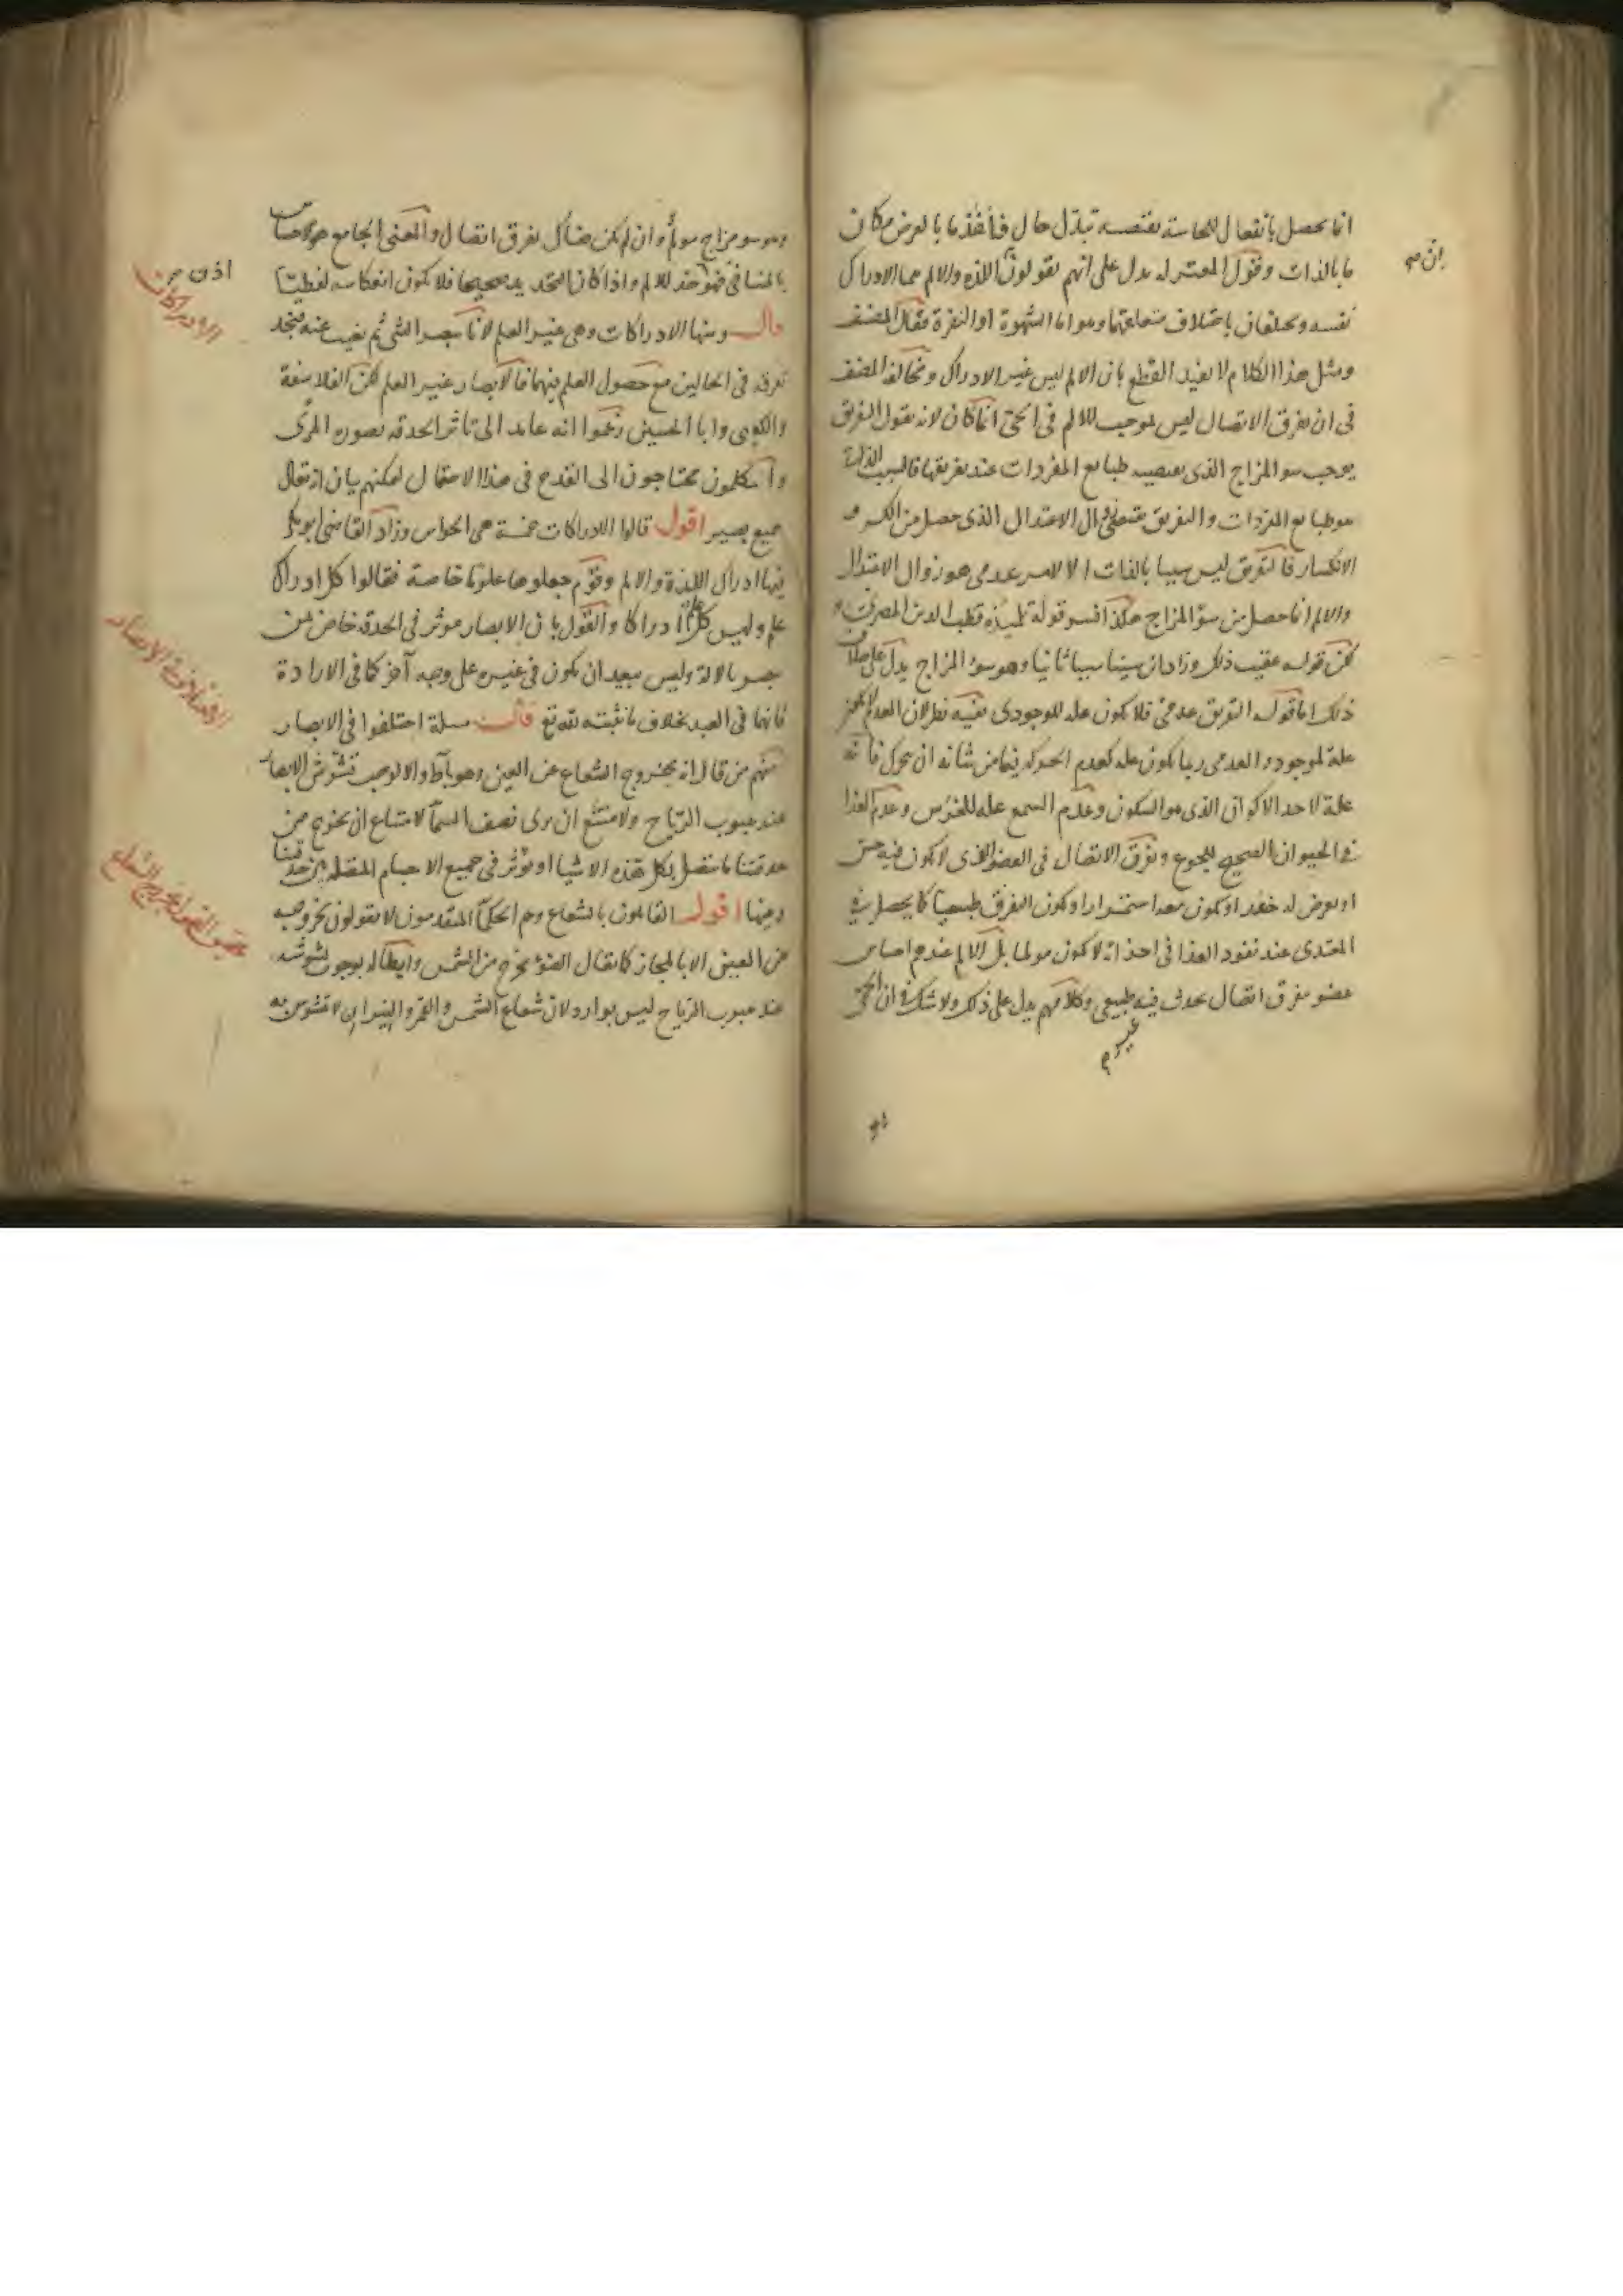 انما يحصل بانفعال للحاسة يقتضيه تبدل حال فأخذ ما بالعرض مكان
ما بالذات وقول المعتزله يدل على انهم يقولون اللذه والالم هما الادراك
نفسه ويختلفان باختلاف متعلقهما وهو اما الشهوة او النفرة فقال المصنف
ومثل هذا الكلام لا يفيد القطع بان الالم ليس غير الادراك ومخالفة المصنف
فى ان تفرق الاتصال ليس لموجب للالم فى الحي انما كان لانه يقول التفريق
يوجب سو المزاج الذى يقتضيه طبايع المفردات عند تفريقها فالسبب الذاتى
هو طبايع المفردات والتفريق يقتضى زوال الاعتدال الذى حصل من الكسر و
الانكسار فالتفريق ليس سببا بالذات الا لامر عدمى هو زوال الاعتدال
والالم انما حصل من سوء المزاج هكذا فسر قوله تلميذه قطب الدين المصرى
لكن قوله عقيب ذلك وزاد ابن سينا سببا ثانيا وهو سوء المزاج يدل على خلاف
ذلك اما قوله التفريق عدمى فلا يكون علة للوجودى ففيه نظر لان العدم لا يكون
علة لموجود والعدمى ربما يكون علة كعدم الحركة فيما من شانه ان يتحرك فانه
علة لاحد الاكوان الذى هو السكون وعدم السمع علة للخرس وعدم الغذا
فى الحيوان الصحيح للجوع وتفرق الاتصال فى العضو الذى لا يكون فيه حس
او يعرض له خدر او يكون معه استمرار او يكون التفرق طبيعيا كما يحصل فى
المغتذى عند نفوذ الغذا فى اجزائه لا يكون مولما بل الالم عندهم احساس
عضو بتفرق اتصال يحدث فيه غير طبيعى وكلامهم يدل على ذلك ولا شك فى ان الحي
وهو سو مزاج مولم وان لم يكن هناك تفرق اتصال والمعنى الجامع هو الاحساس
بالمنافى فهو حد للالم واذا كان التحديد صحيحا فلا يكون انعكاسه لفظيا
قال ومنها الادراكات وهى غير العلم لانا نبصر الشى ثم نغيب عنه فنجد
تفرقة فى الحالين مع حصول العلم فيهما فالابصار غير العلم لكن الفلاسفة
والكعبى وابا الحسين زعموا انه عايد الى تاثر الحدقه بصورة المرئى
والمتكلمون محتاجون الى القدح فى هذا الاحتمال ليمكنهم بيان انه تعالى
سميع بصير اقول قالوا الادراكات خمسة هى الحواس وزاد القاضى ابو بكر
فيها ادراك اللذة والالم وقوم جعلوها علوما خاصة فقالوا كل ادراك
علم وليس كل علم ادراكا والقول بان الابصار موثر فى الحدقة خاص لمن
يبصر بالالة وليس ببعيد ان يكون فى غيره على وجه آخر كما فى الارادة
فانها فى العبد بخلاف ما نثبته لله تع قال مسلة اختلفوا فى الابصار
منهم من قال انه بخروج الشعاع عن العين وهو باطل والا لوجب تشوش الابصار
عند هبوب الرياح ولامتنع ان نرى نصف السما لامتناع ان يخرج من
حدقتنا ما يتصل بكل هذه الاشيا او يوثر فى جميع الاجسام المتصلة بين حدقتنا
وبينها اقول القايلون بالشعاع وهم الحكما المتقدمون لا يقولون بخروجه
عن العينى الا بالمجاز كما يقال الضوء يخرج من الشمس وابطاله بوجوب تشوشه
عند هبوب الرياح ليس بوارد لان شعاع الشمس والقمر والنيران لا تشوش به
الادراكات
اختلاف الابصار
القول بخروج الشعاع